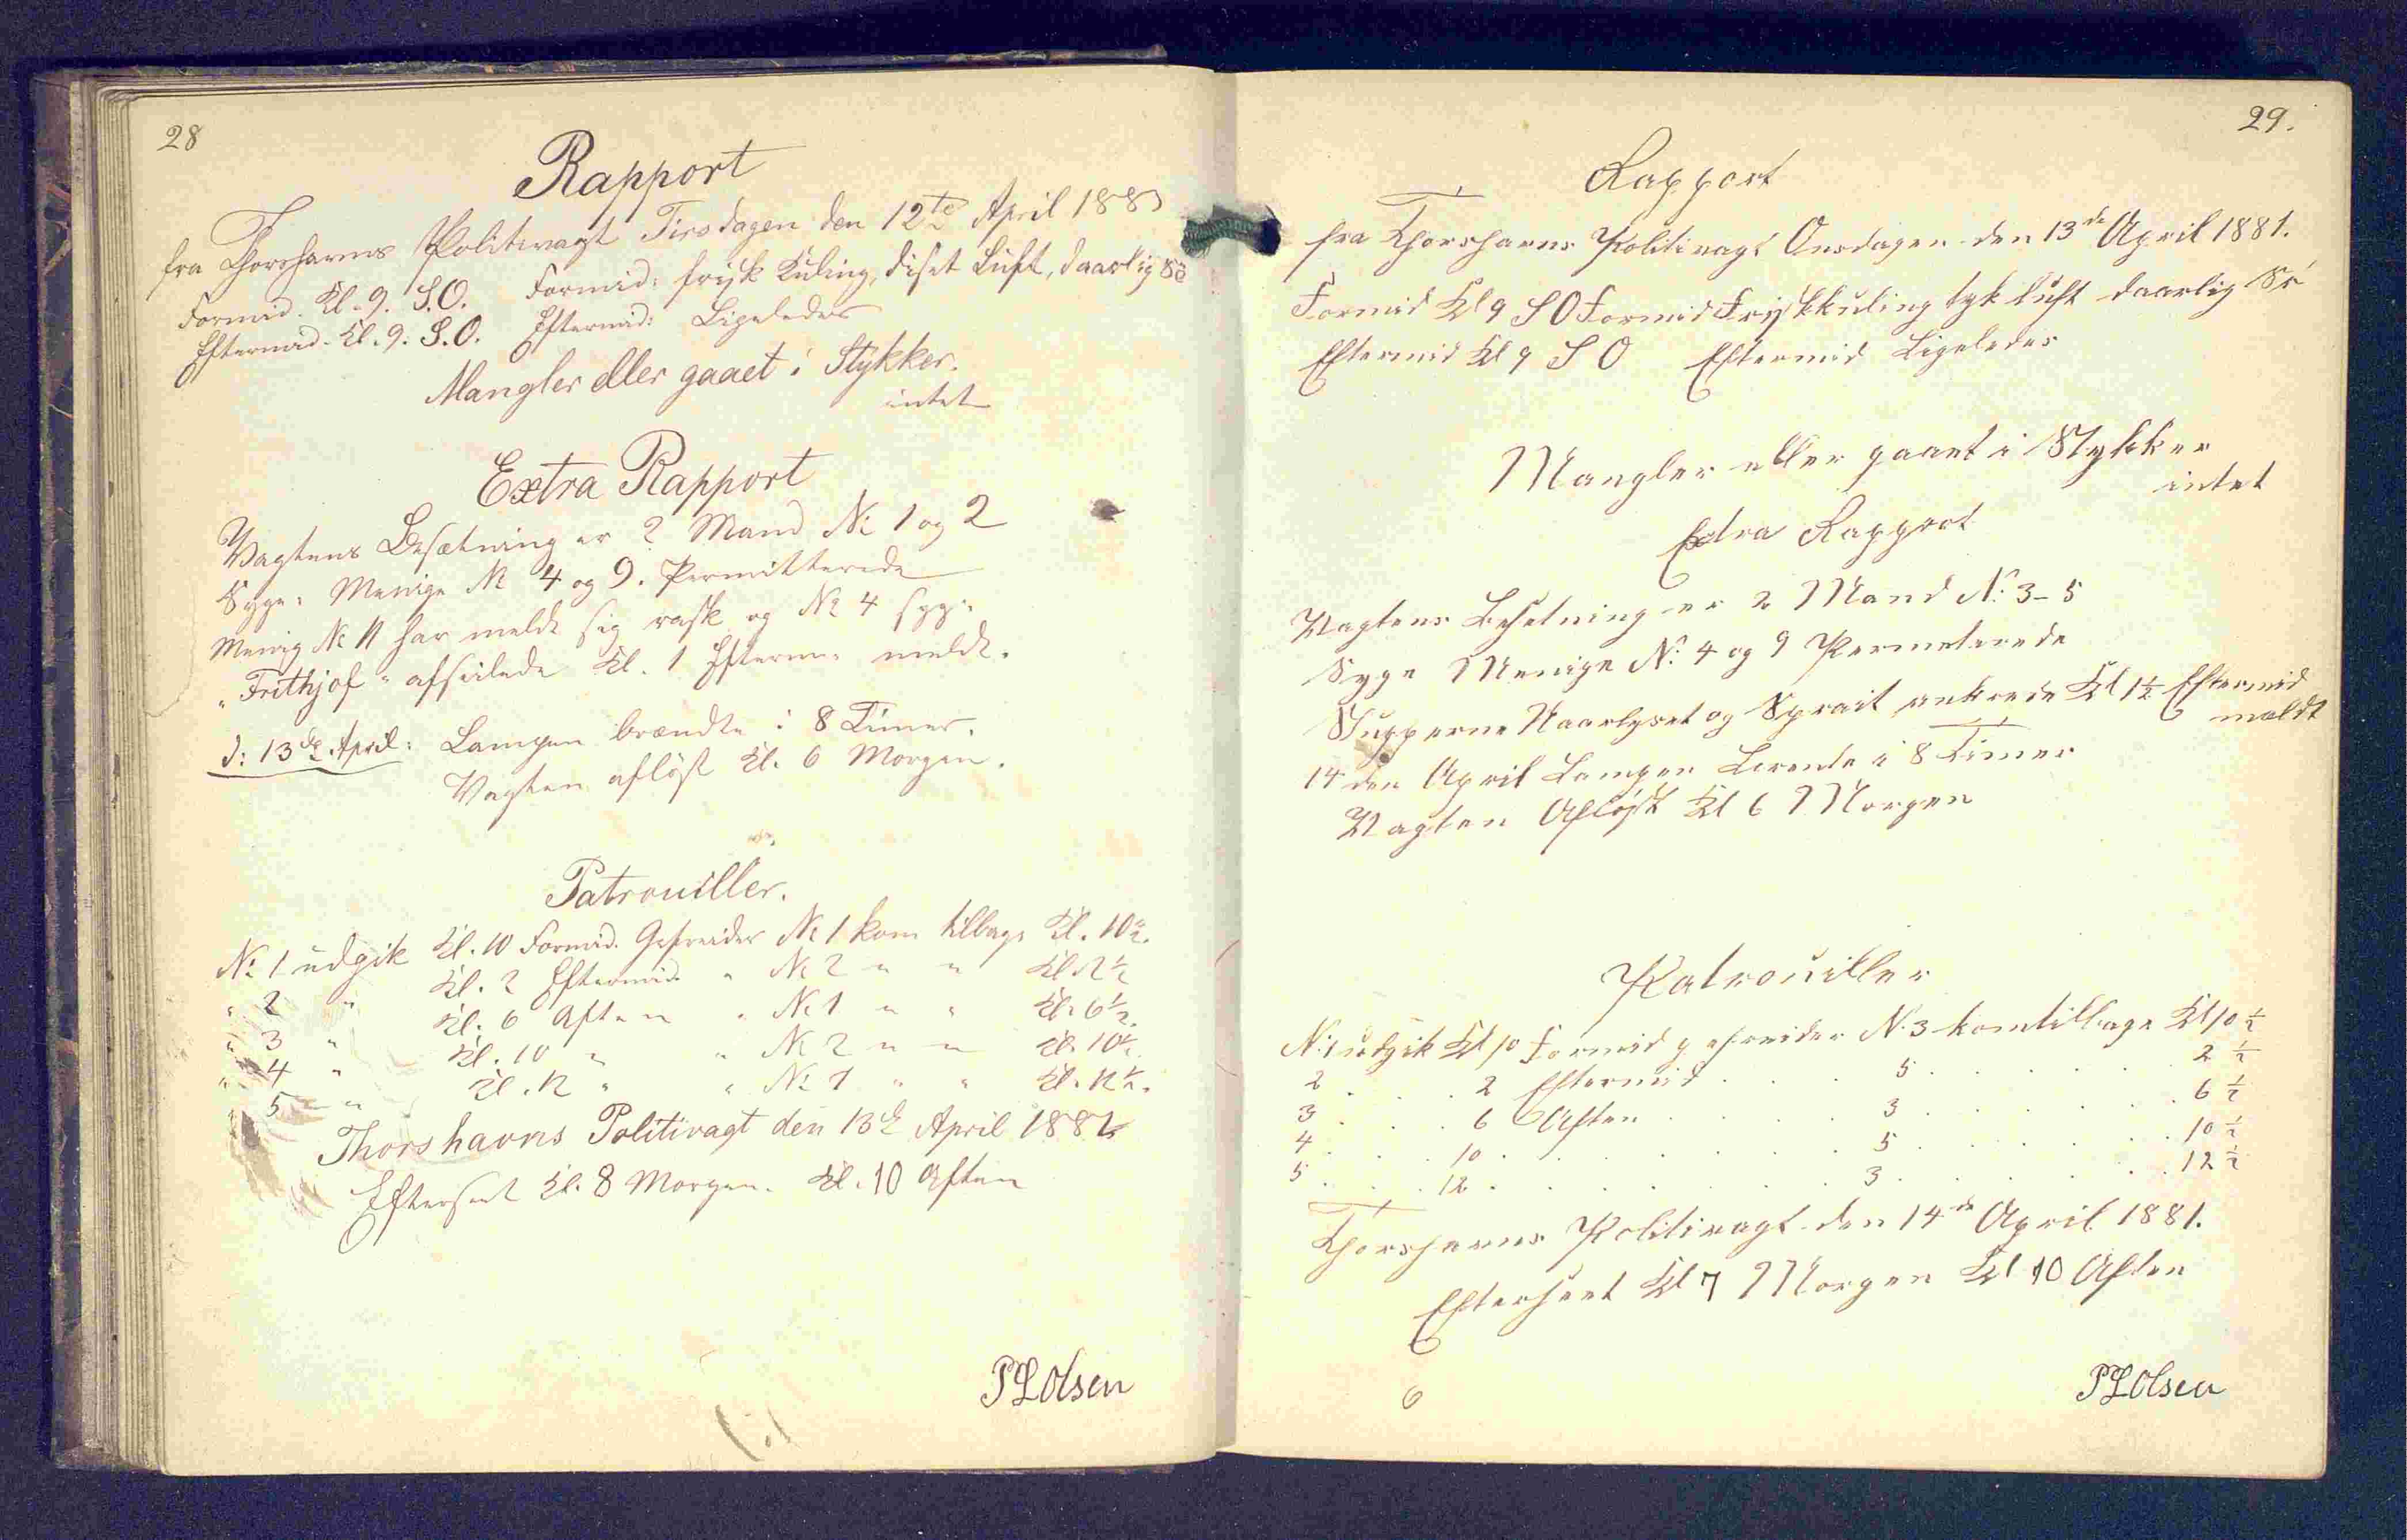 28
Rapport
fra Thorshavns Politivagt Tirsdagen den 12te April 1881
Formid. Kl. 9. S.O. Formid: frisk Kuling, diset Luft, daarlig Sö
Eftermid. Kl. 9. S.O. Eftermid: Ligeledes
Mangler eller gaaet i Stykker.
intet
Extra Rapport
Vagtens Besætning er 2 Mand No 1 og 2
Syge: Menige No 4 og 9. Permitterede
Menig No 11 har meldt sig rask og No 4 syg:
"Frithjof" afseilede Kl. 1 Efterm: meldt.
d: 13de April: Lampen brændte i 8 Timer.
Vagten aflöst Kl. 6 Morgen.
Patrouiller.
No 1 udgik Kl. 10 Formid. Gefreider No 1 kom tilbage Kl. 10½.
" 2 " Kl. 2 Eftermid. " No 2 " " Kl. 2½
" 3 " Kl. 6 Aften " No 1 " " Kl. 6½.
" 4 " Kl. 10 " " No 2 " " Kl. 10½.
" 5 " Kl. 12 " " No 1 " " Kl. 12½.
Thorshavns Politivagt den 13de April 1881
Efterseet Kl. 8 Morgen. Kl. 10 Aften
PLOlsen
29.
Rapport
fra Thorshavns Politivagt Onsdagen den 13de April 1881.
Formid Kl 9 S O Formid Frisk kuling tyk luft daarlig Sö
Eftermid Kl 9 S O Eftermid Ligeledes
Mangler eller gaaet i Stykker
intet
Extra Rapport
Vagtens Besetning er 2 Mand No 3-5
Syge Menige No 4 og 9 Permeterede
Slupperne Naarlyset og Sprait ankrede Kl 1½ Eftermid
meldt
14 den April Lampen brente i 8 Timer
Vagten Aflöst Kl 6 Morgen
Patrouiller
No 1 udgik Kl 10 Formid gefreider No 3 kom tilbage Kl 10½
2 . . . 2 Eftermid . . . 5 . . . . . 2½
3 . . . 6 Aften . . . 3 . . . . . 6½
4 . . . 10 . . . . . 5 . . . . . 10½
5 . . . 12 . . . . . 3 . . . . . 12½
Thorshavns Politivagt den 14de April 1881.
Efterseet Kl 7 Morgen Kl 10 Aften
PLOlsen